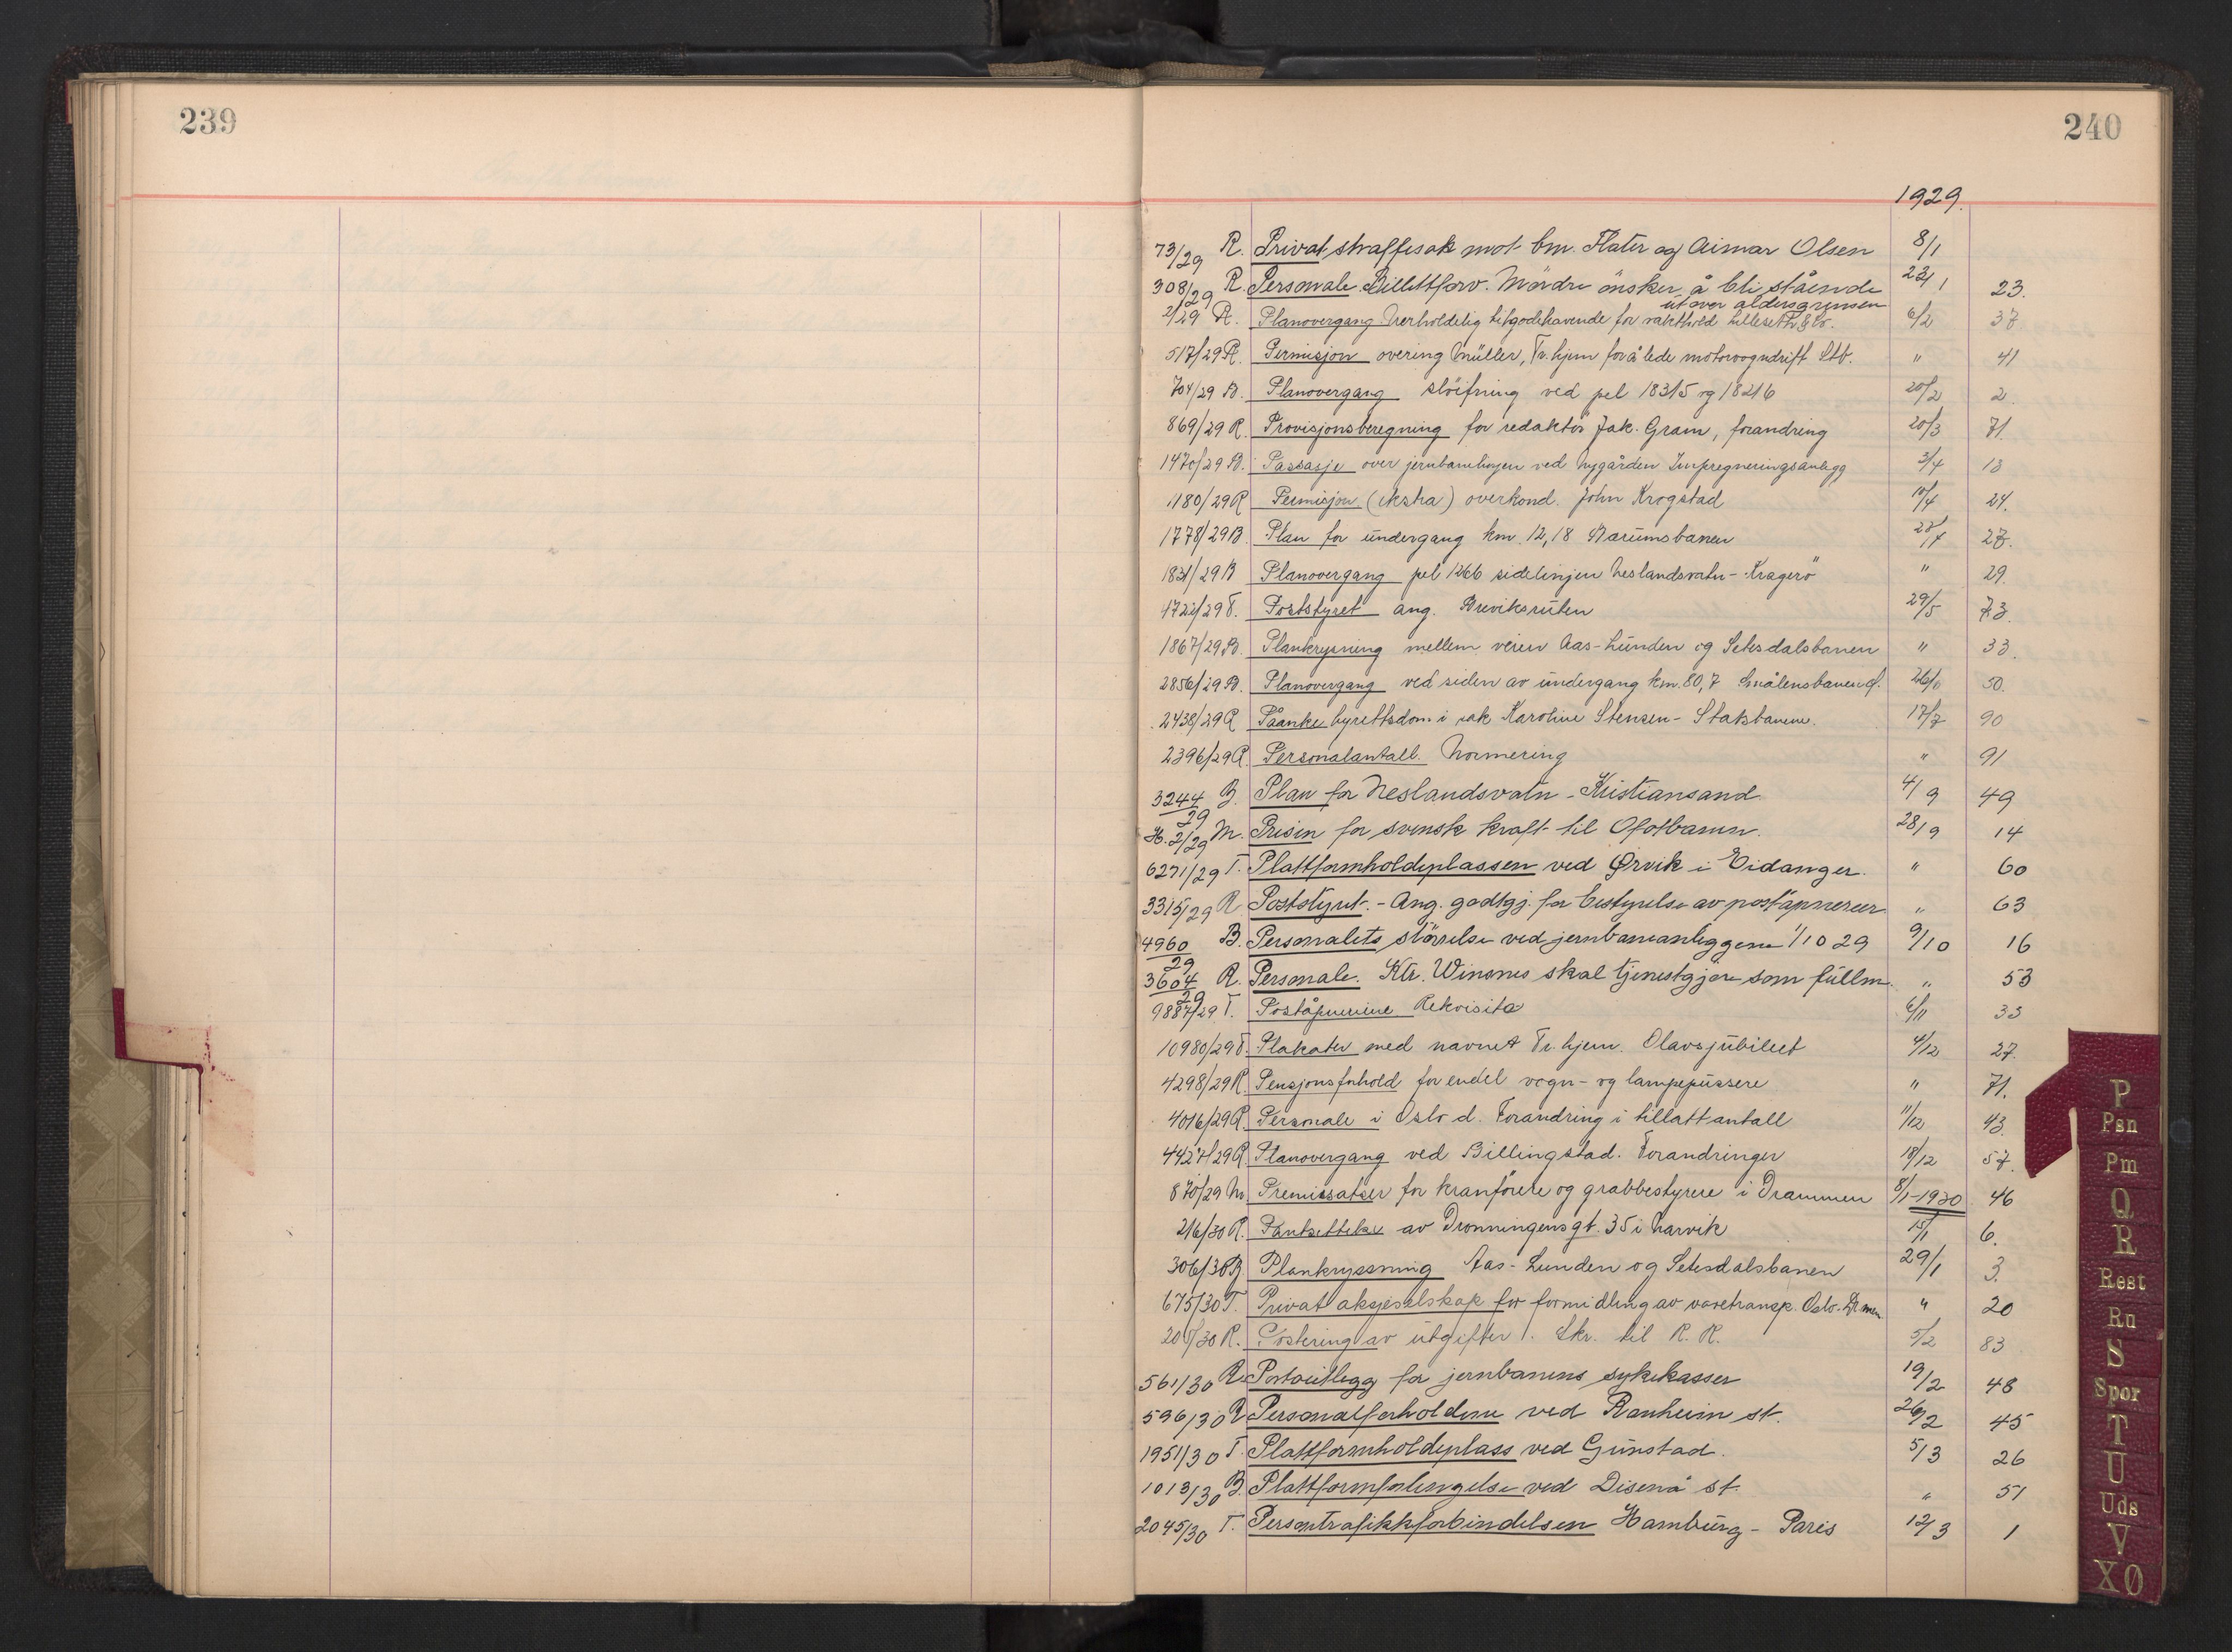 239
240
1929.
73/29 R. Privat straffesak mot bm. Flater og Aimar Olsen 8/1
308/29 R. Personale. Billettforv. Mørdre ønsker å bli stående 23/1 23.
utover aldersgrensen
2/29 R. Planovergang Uerholdelig tilgodehavende for vakthold 6/2 37
517/29 R. Permisjon overing Müller, Tr.hjem for å lede motorvogndrift Stb. " 41
704/29 B. Planovergang sløifning ved pel 18315 og 18216 20/2 2.
869/29 R. Provisjonsberegning for redaktør Jak. Gram, forandring 20/3 71.
1470/29 B. Passasje over jernbanelinjen ved Nygården Impregneringsanlegg 3/4 13
1180/29 R Permisjon (ekstra) overkond. John Krogstad 10/4 24.
1778/29 B. Plan for undergang km. 12,18 Bærumsbanen 27.
1831/29 B Planovergang pel 1266 sidelinjen Neslandsvatn - Kragerö " 29.
4721/29 T. Poststyret ang. Breviksruten 29/5 73.
1867/29 B. Plankrysning mellem veien Aas-Lunden og Setesdalsbanen " 33.
2856/29 B. Planovergang ved siden av undergang km. 80,7 Smålensbanen 26/6 50.
2438/29 R Påanke byrettsdom i sak Karoline Stensen - Statsbanene. 17/7 90
2396/29 R. Personalantall. Normering " 91
3244/29 B. Plan for Neslandsvatn - Kristiansand 4/9 49
H. 2/29 M. Prisen for svensk kraft til Ofotbanen. 28/9 14
6271/29 T. Plattformholdeplassen ved Ørvik i Eidanger. " 60
3315/29 R. Poststyret. - Ang. godtgj. for bestyrelse av postäpnerier. " 63
4960/29 B. Personalets störrelse ved jernbaneanleggene 1/10 29 9/10 16
3604/29 R. Personale. Ktr. Winsnes skal tjenestgjøre som fullm. " 53
9887/29 T. Poståpneriene Rekvisita 6/11 33
10980/29 T. Plakater med navnet Tr.hjem. Olavsjubileet 4/12 27.
4298/29 R. Pensjonsforhold for endel vogn- og lampepussere " 71.
4016/29 R. Personale i Oslo d. Forandring i tillatt antall 11/12 43
4427/29 R. Planovergang ved Billingstad. Forandringer 18/12 57.
870/29 M. Premiesatser for kranförere og grabbestyrere i Drammen 8/1-1930 46
216/30 R. Pantsettelse av Dronningensgt. 35 i Narvik 15/1 6.
306/30 B Plankryssning Aas-Lunden og Setesdalsbanen 29/1 3.
675/30 T. Privat aksjeselskap for formidling av varetransp. Oslo-Drmen " 20
R. Postering av utgifter. Skr. til R. R. 5/2 83
561/30 R. Portoutlegg for jernbanens sykekasser 19/2 48
596/30 R Personalforholdene ved Ranheim st. 26/2 45
1951/30 T. Plattformholdeplass ved Gunstad. 5/3 26
1013/30 B. Plattformforlengelse ved Disenå st. " 51
2045/30 T. Persontrafikkforbindelsen Hamburg - Paris 12/3 1
P
Psn
Pm
Q
R
Rest
Ru
S
Spor
T
U
Uds
V
XØ